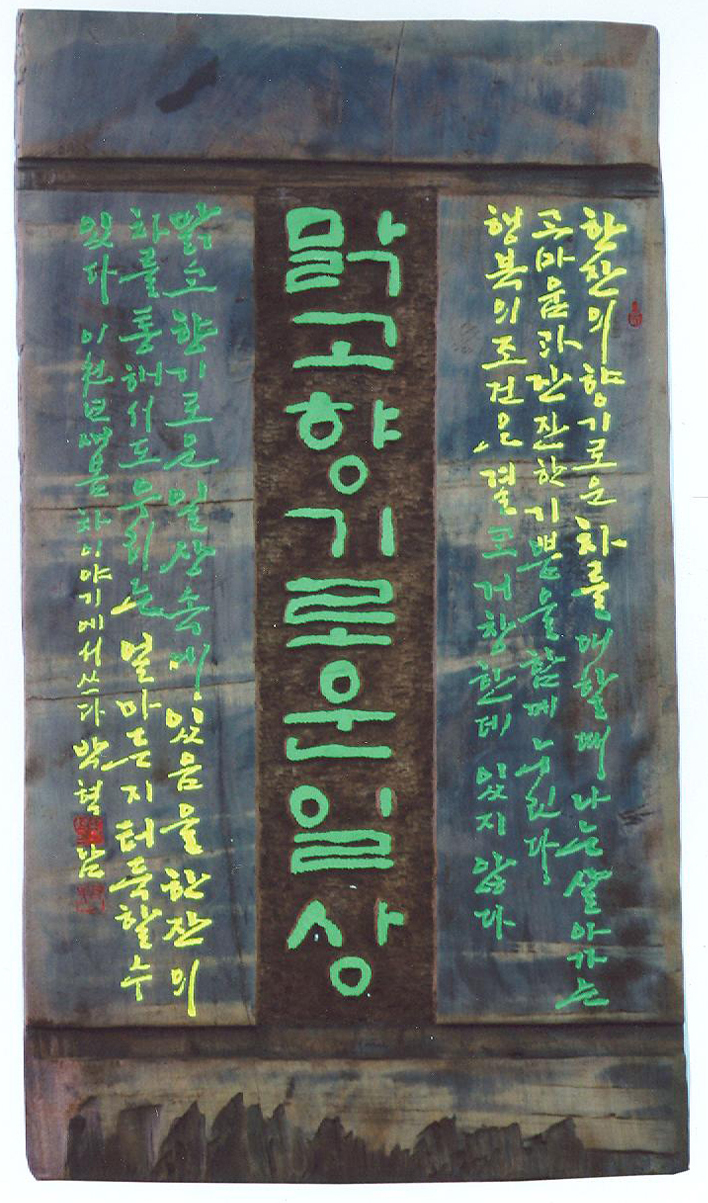 한잔의 향기로운 차를 대할때 나는 살아가는
고마움과 잔잔한 기쁨을 함께 누린다
행복의 조건은 결코 거창한데 있지 않다
맑고 향기로운 일상
맑고 향기로운 일상 속에 있음을 한잔의
차를 통해서도 우리는 얼마든지 터득할 수
있다 이천 년 봄 차이야기에서 쓰다 박혁남